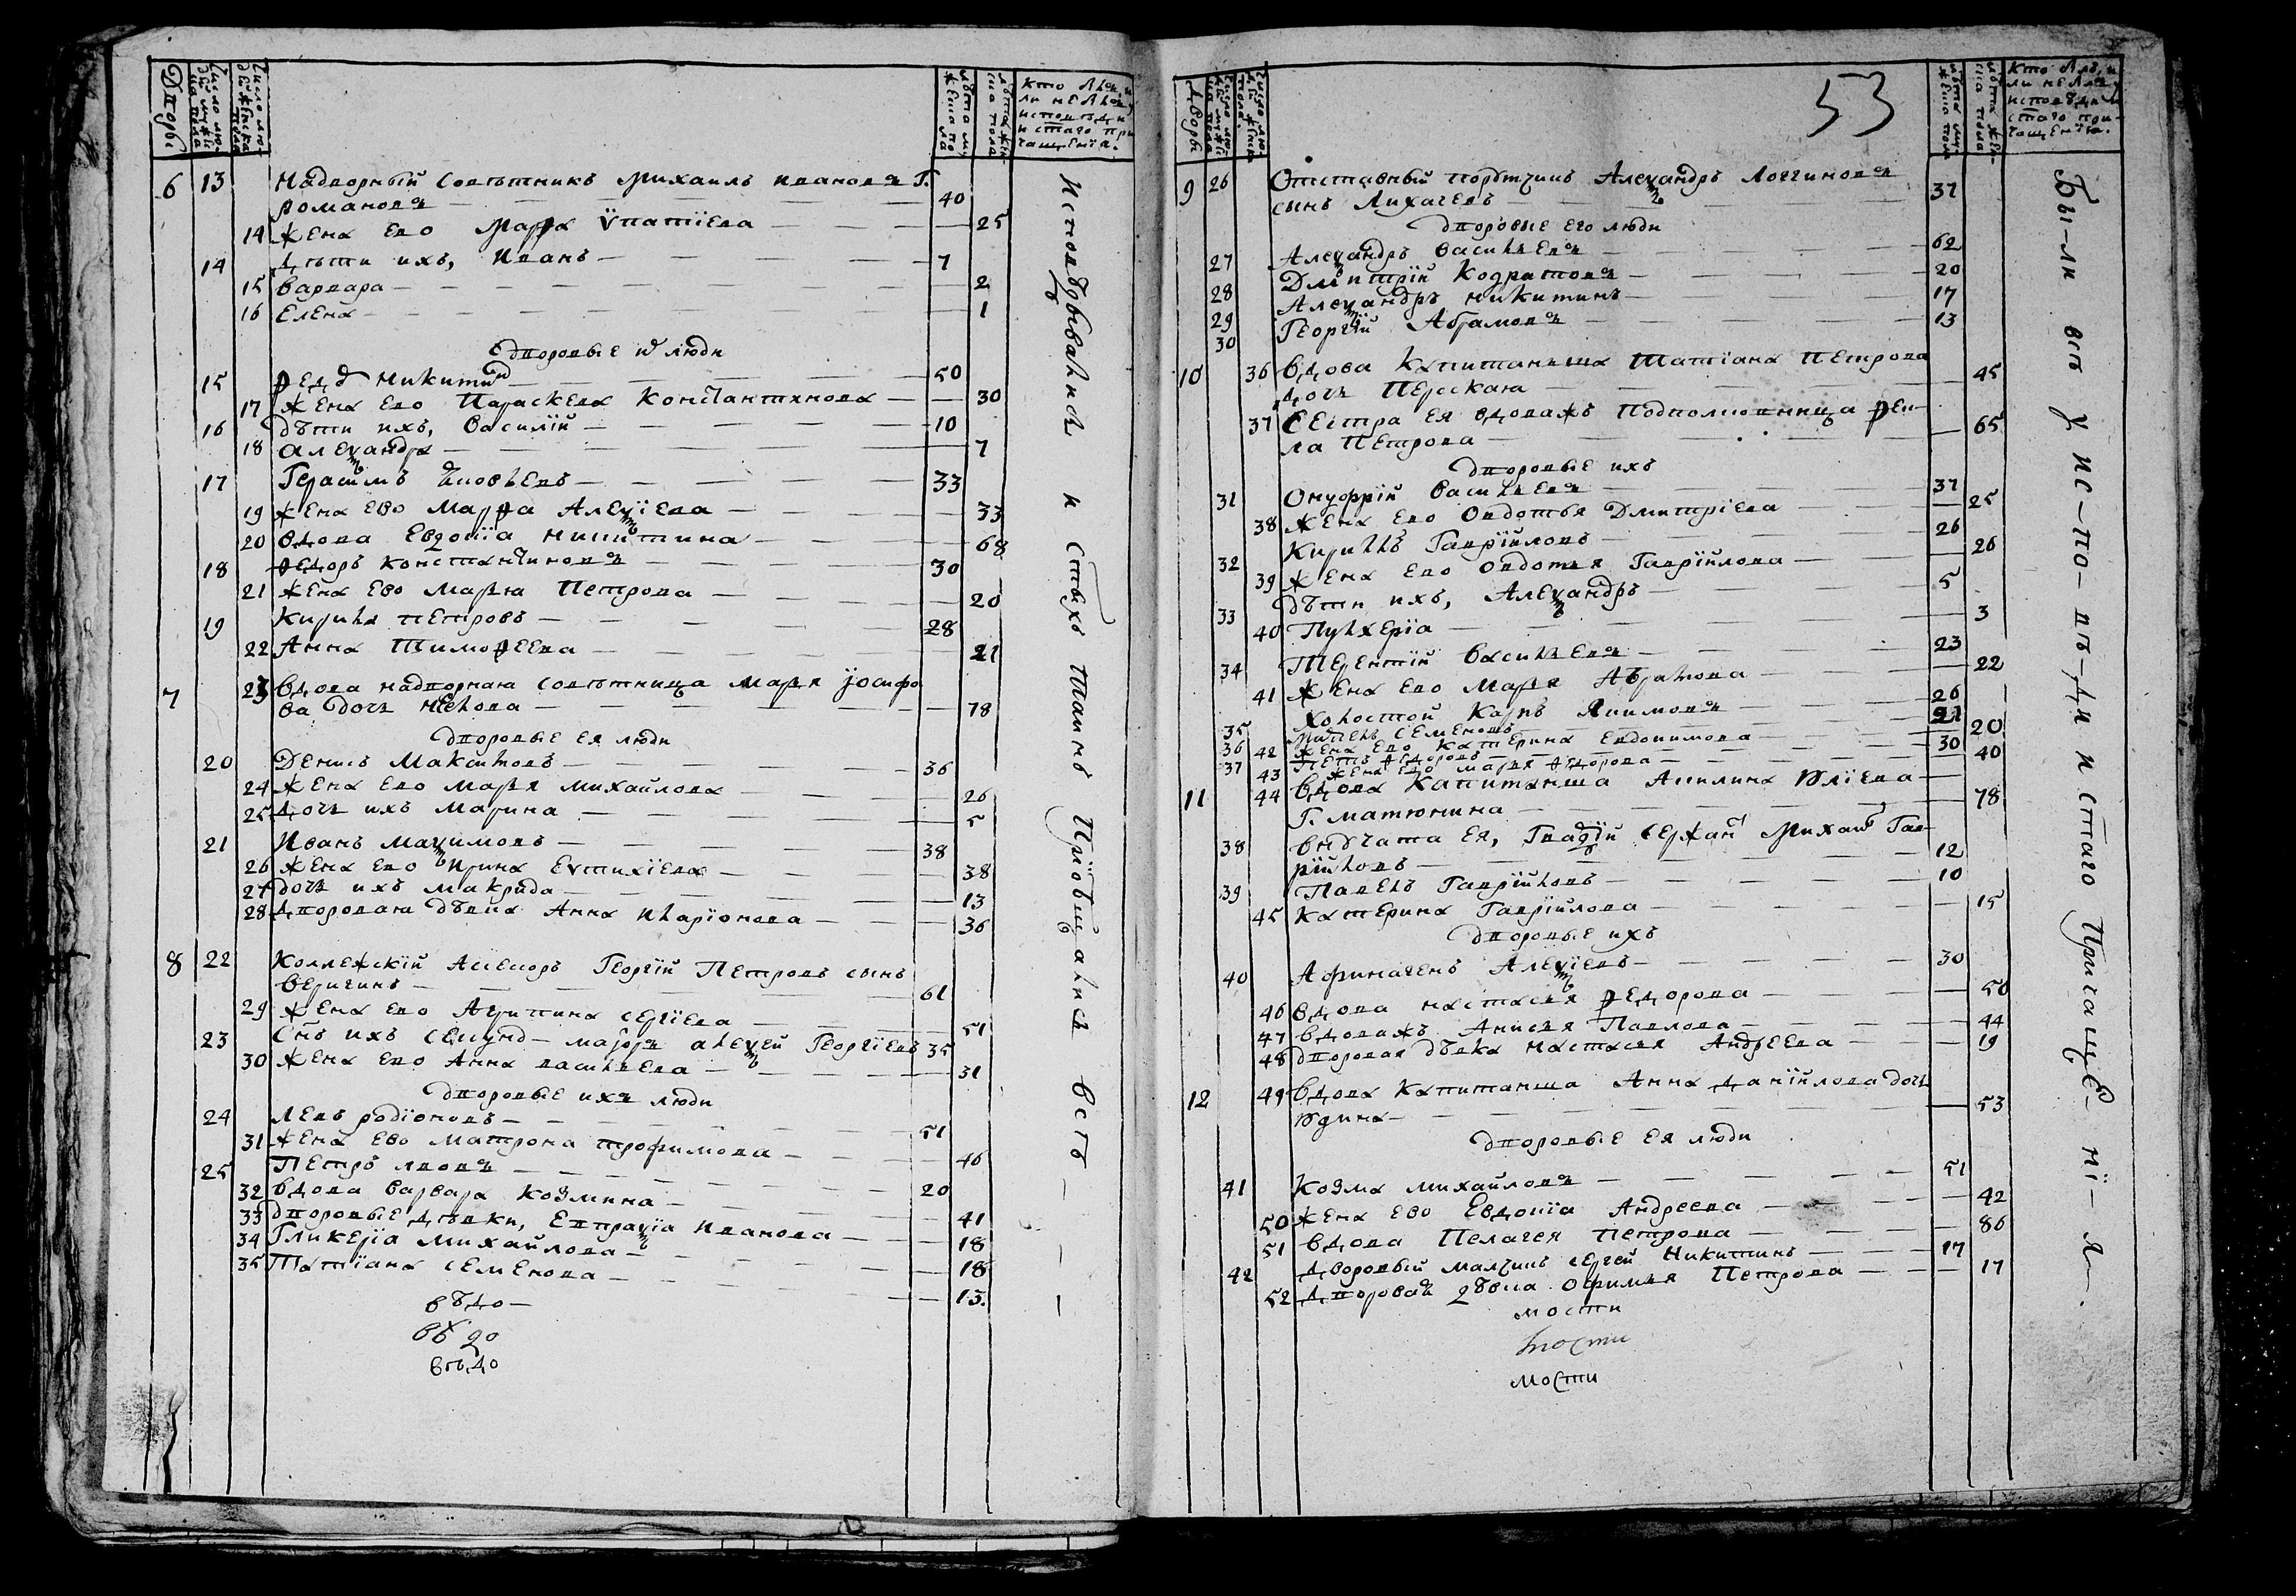 Дворы
Число людей мужеска пола
Число людей женска пола
Лета мужеска пола
Лета женска пола
Кто былъ, и
ли не былъ у
исповѣди и
стаго при
чащенїя.
6 13 Надворный советникъ Михаилъ Ивановъ Г.
Романовъ — 40
14 жена ево Марфа Ѵпатїева — 25
14 Дѣти ихъ, Иванъ — 7
15 Варвара — 2
16 Елена — 1
Дворовые их люди
15 Федоръ Никитинъ — 50
17 жена ево Параскева Константинова — 30
16 дѣти ихъ, Василїй — 10
18 Александра — 7
17 Герасимъ — 33
19 жена ево Марфа Алеѯїева — 33
20 вдова Евдокїа Никитина — 68
18 Федоръ Константиновъ — 30
21 жена ево Марья Петрова — 20
19 Кирила Петровъ — 28
22 Анна Тимофеева — 21
7 23 вдова надворная советница Марья Іосифо
ва дочь — 78
Дворовые ея люди
20 Денисъ Максимовъ — 36
24 жена ево Марья Михайлова — 26
25 дочь ихъ Марина — 5
21 Иванъ Маѯимовъ — 38
26 жена ево Ирина Евтихїева — 38
27 дочь ихъ Макрида — 13
28 дворовая дѣвка Анна Иларїонова — 36
8 22 Коллежскїй Ассесоръ Георгїй Петровъ сынъ
Веригинъ — 61
29 жена ево Агрипина Сергїева — 51
23 Снъ ихъ секундъ-маїоръ Алеѯей Георгїевъ 35
30 жена ево Анна Васильева — 31
дворовые ихъ люди
24 Левъ Родїоновъ — 51
31 жена ево Матрона Трофимова — 46
25 Петръ Львовъ — 20
32 вдова Варвара Козмина — 41
33 дворовые дѣвки, Евпраѯїа Иванова — 18
34 Гликерїа Михайлова — 18
35 Татїана Семенова — 13.
вѣдо—
вѣдо
вѣдо
Исповѣдывались и стыхъ таинъ прїобщались всѣ — — —
53
Дворы
Число людей мужеска пола
Число людей женска пола
Лета мужеска пола
Лета женска пола
Кто былъ, и
ли не былъ у
исповѣди и
стаго при-
чащенїя.
9 26 Отставный порутчикъ Алеѯандръ Логгиновъ
сынъ Лихачевъ — 37
Дворовые его люди
27 Алеѯандръ Васильевъ — 62
28 Дмитрїй Кодратовъ — 20
29 Алеѯандръ Никитинъ — 17
30 Георгїй Абрамовъ — 13
10 36 вдова капитанша Татїана Петрова
дочь Перская — 45
37 Сестра ея вдоважъ подполковница Фек-
ла Петрова — 65
дворовые ихъ
31 Онуфрїй Васильевъ — 37
38 жена ево Овдотья Дмитрїева — 25
32 Кирилъ Гаврїиловъ — 26
39 жена ево Овдотья Гаврїилова — 26
33 дѣти ихъ, Алеѯандръ — 5
40 Пулхерїа — 3
34 Терентїй Васильевъ — 23
41 жена ево Марья Абрамова — 22
35 Холостой Карпъ Якимовъ — 26
36 Семеновъ — 21
42 жена ево Катерина Евдокимова — 20
37 Петръ Федоровъ — 30
43 жена ево Марья Федорова — 40
11 44 вдова капитанша Акилина Илїева
Г. Матюнина — 78
38 внучата ея, гвардїй сержантъ Михаилъ Гав-
рїиловъ — 12
39 Павелъ Гаврїиловъ — 10
45 Катерина Гаврїилова — 15
дворовые ихъ
40 Афиногенъ Алеѯїевъ — 30
46 вдова Настасья Федорова — 50
47 вдоважъ Анисья Павлова — 44
48 дворовая дѣвка Настасья Андреева — 19
12 49 вдова капитанша Анна Данїилова дочь
Юдина — 53
дворовые ея люди
41 Козма Михайловъ — 51
50 жена ево Евдокїа Андреева — 42
51 вдова Пелагея Петрова — 86
42 дворовый малчикъ Сергей Никитинъ — 17
52 дворовая дѣвка Офимья Петрова — 17
мости
мости
мости
Бы-ли всѣ у ис-по-вѣ-ди и стаго причаще-нї-я-.